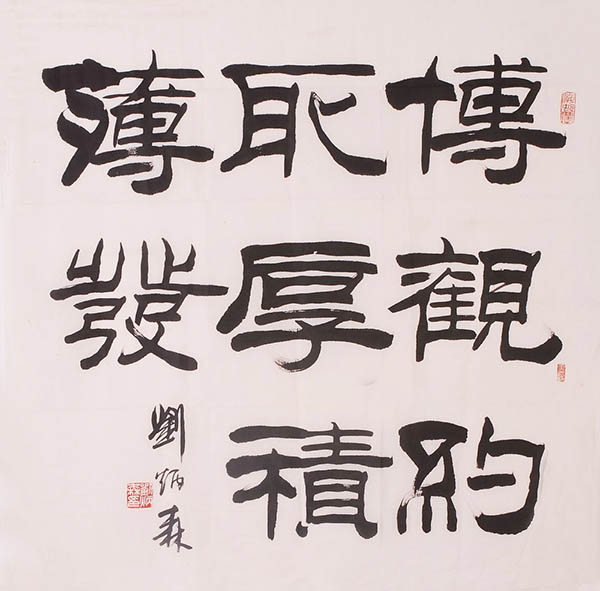 博觀約
取厚積
薄發
劉炳森